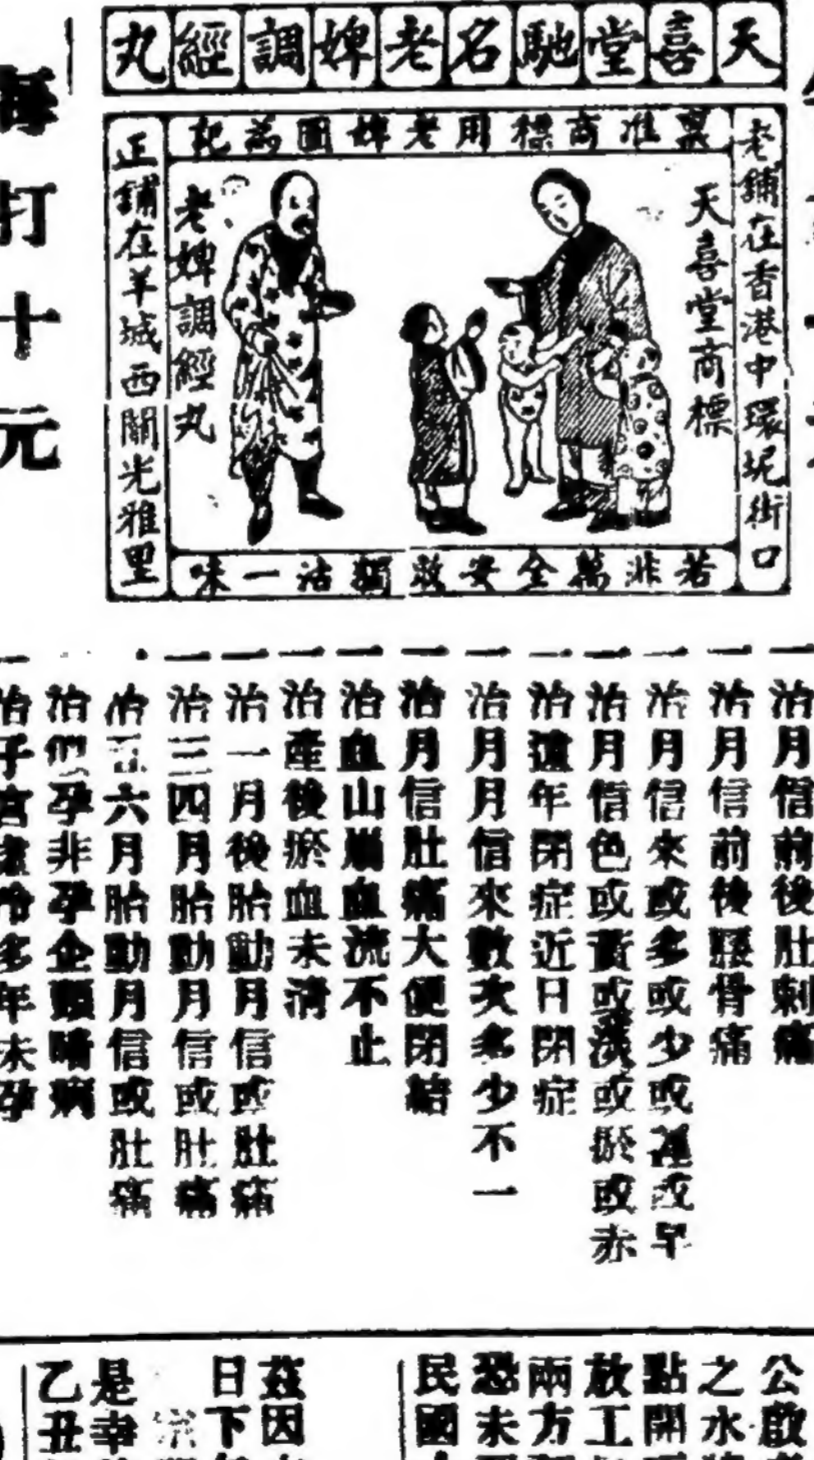 天喜堂馳名老婢調經丸
稟准商標用老婢圖為記
老鋪在香港中環坭街口
天喜堂商標
老婢調經丸
正鋪在羊城西關光雅里
若非萬全安敢獨沽一味
每打十元
一治月信前後肚刺痛
一治月信前後腰骨痛
一治月信來或多或少或遲或早
一治月信色或黃或淡或瘀或赤
一治遠年閉症近日閉症
一治月月信來數次多少不一
一治月信肚痛大便閉結
一治血山崩血流不止
一治產後瘀血未清
一治一月後胎動月信或肚痛
一治三四月胎動月信或肚痛
治五六月胎動月信或肚痛
治似孕非孕企顛暗病
一治子宮冷多年未孕
公啟
之水
點開
放工
兩方
恐未
民國
茲因
日下
是幸
乙丑